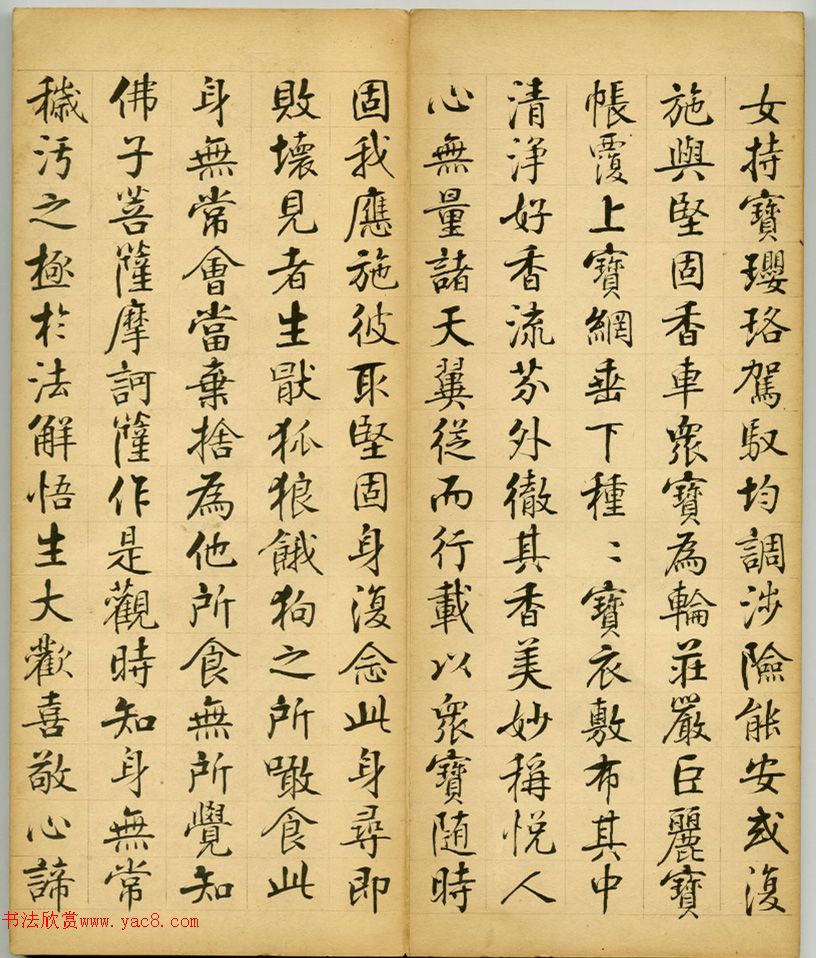 女持寶瓔珞駕馭均調涉險能安或復
施與堅固香車眾寶為輪莊嚴巨麗寶
帳覆上寶網垂下種〻寶衣敷布其中
清淨好香流芬外徹其香美妙稱悅人
心無量諸天翼從而行載以眾寶隨時
固我應施彼取堅固身復念此身尋即
敗壞見者生猒狐狼餓狗之所噉食此
身無常會當棄捨為他所食無所覺知
佛子菩薩摩訶薩作是觀時知身無常
穢污之極於法解悟生大歡喜敬心諦
书法欣赏www.yac8.com